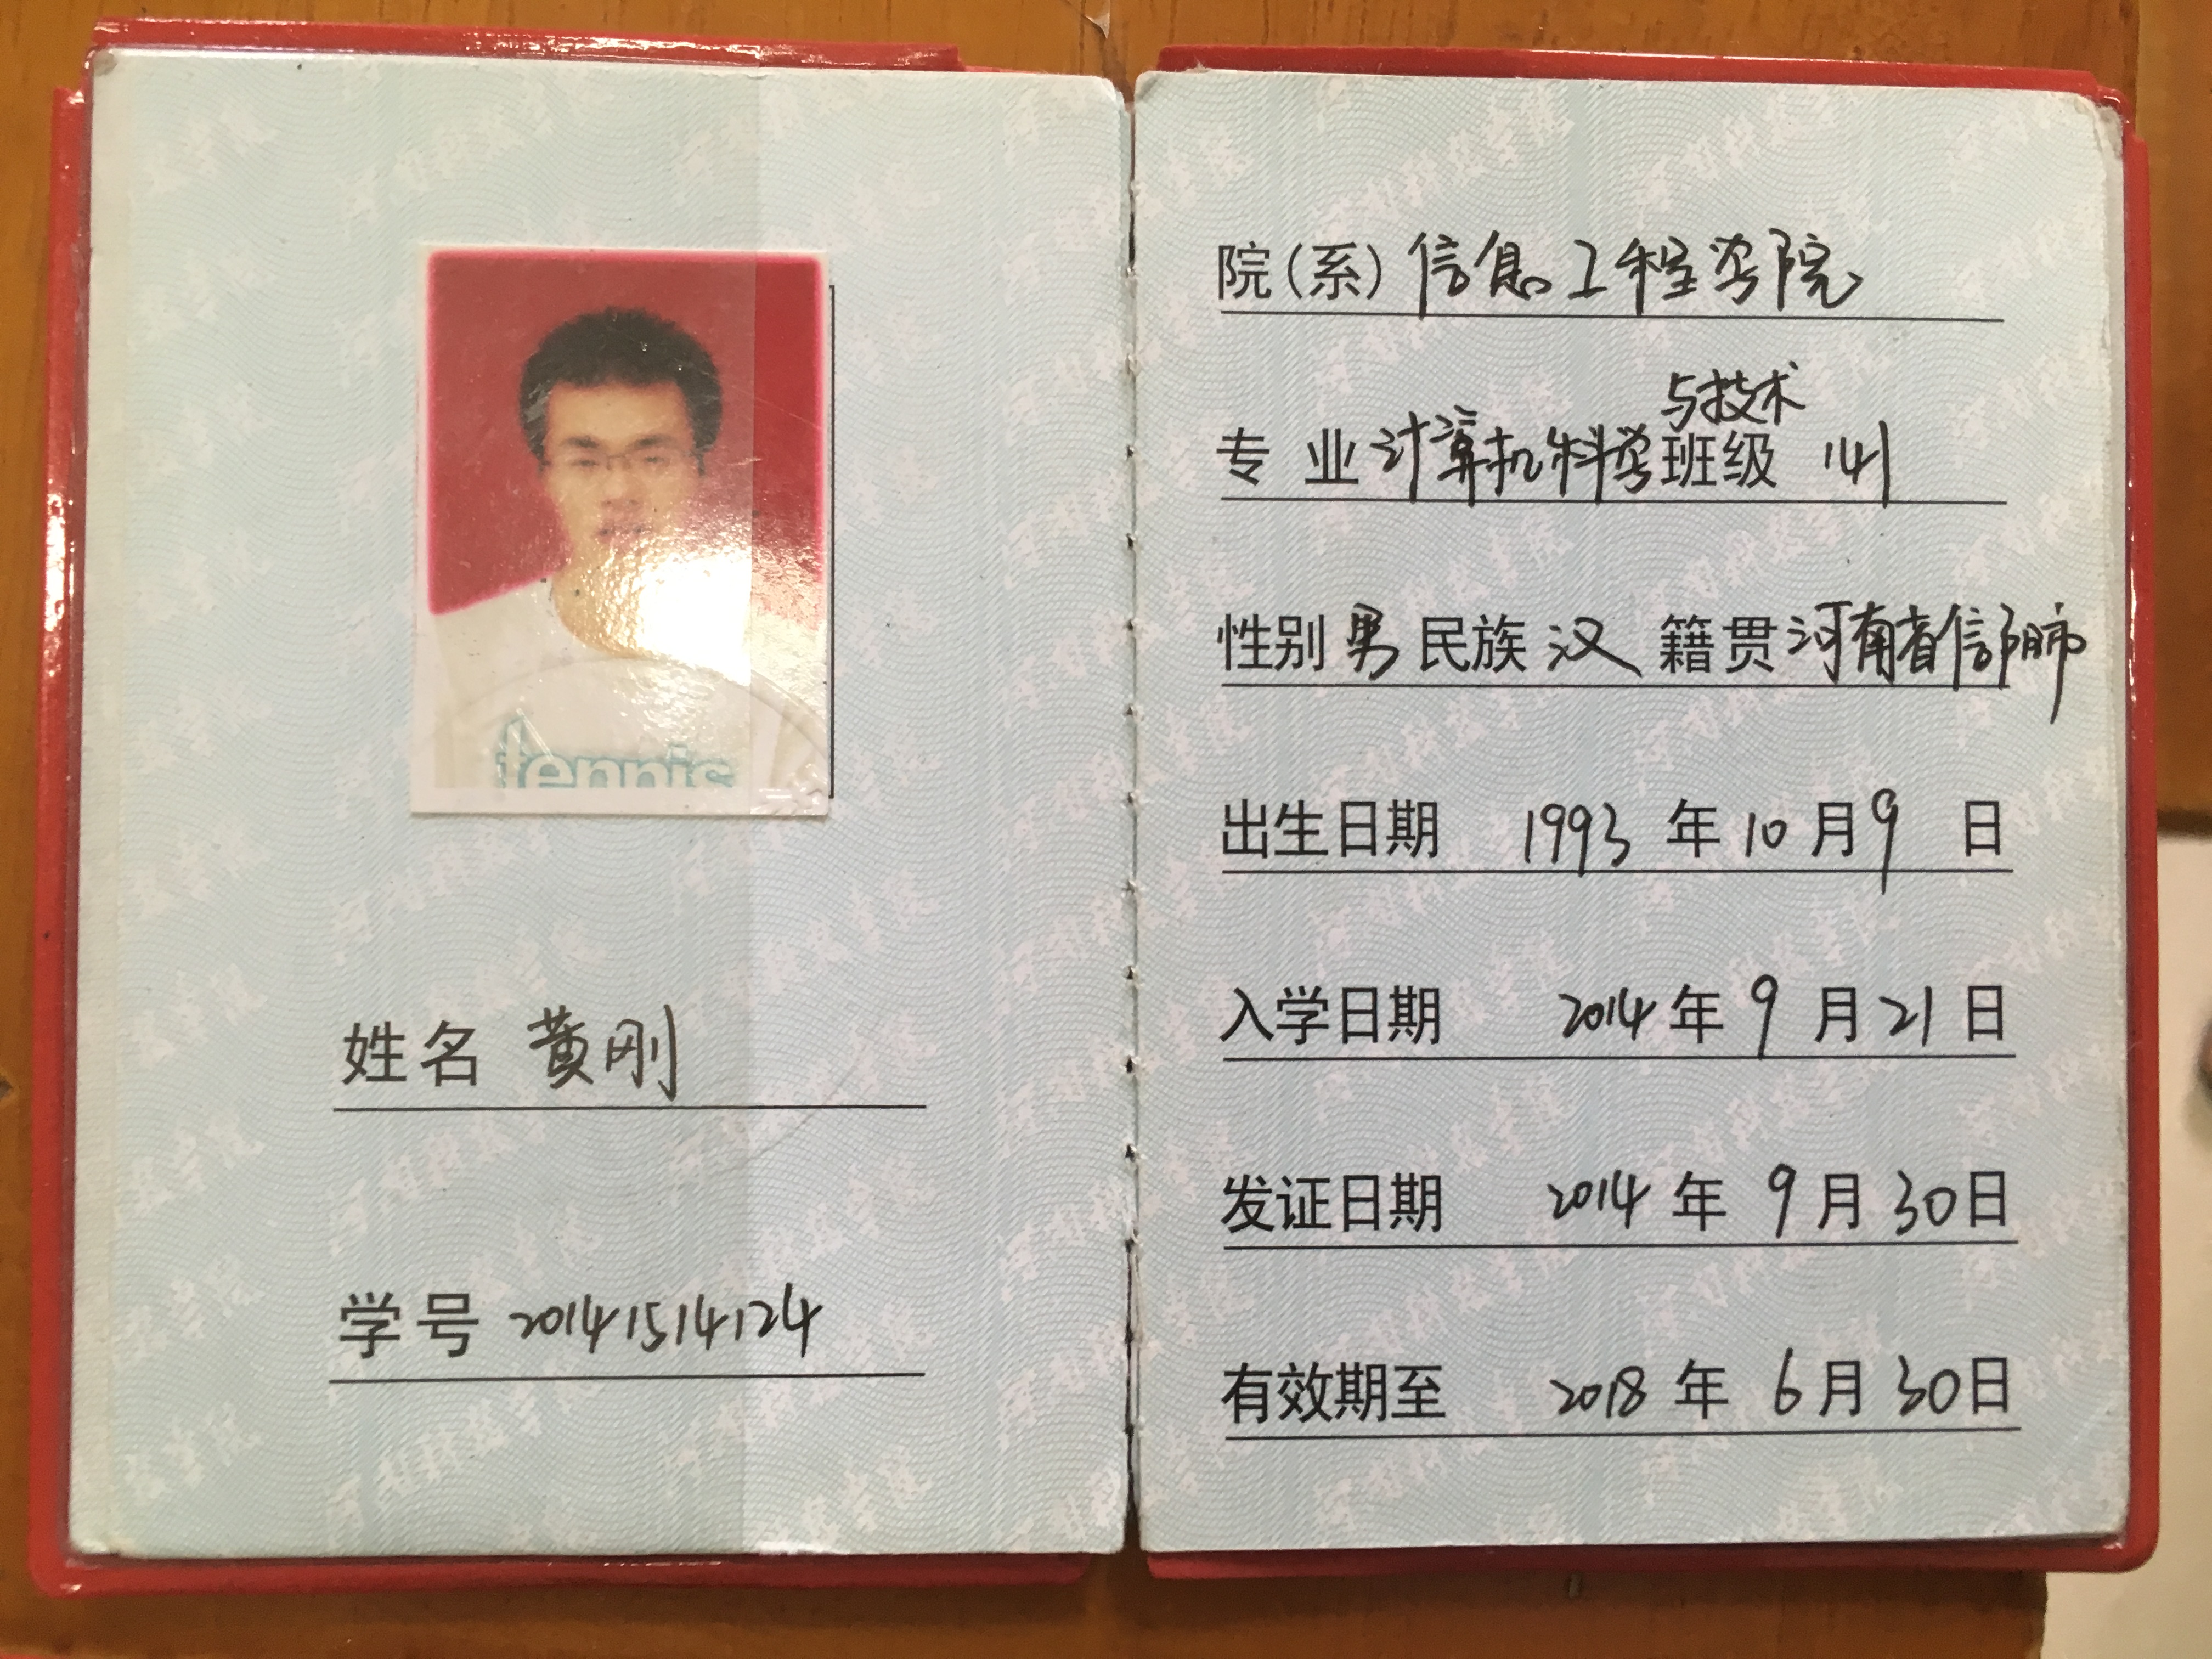 tennis
姓名 黄刚
学号 20141514124
院(系) 信息工程学院
专业 计算机科学与技术 班级 141
性别 男 民族 汉 籍贯 河南省信阳市
出生日期 1993 年 10 月 9 日
入学日期 2014 年 9 月 21 日
发证日期 2014 年 9 月 30 日
有效期至 2018 年 6 月 30 日